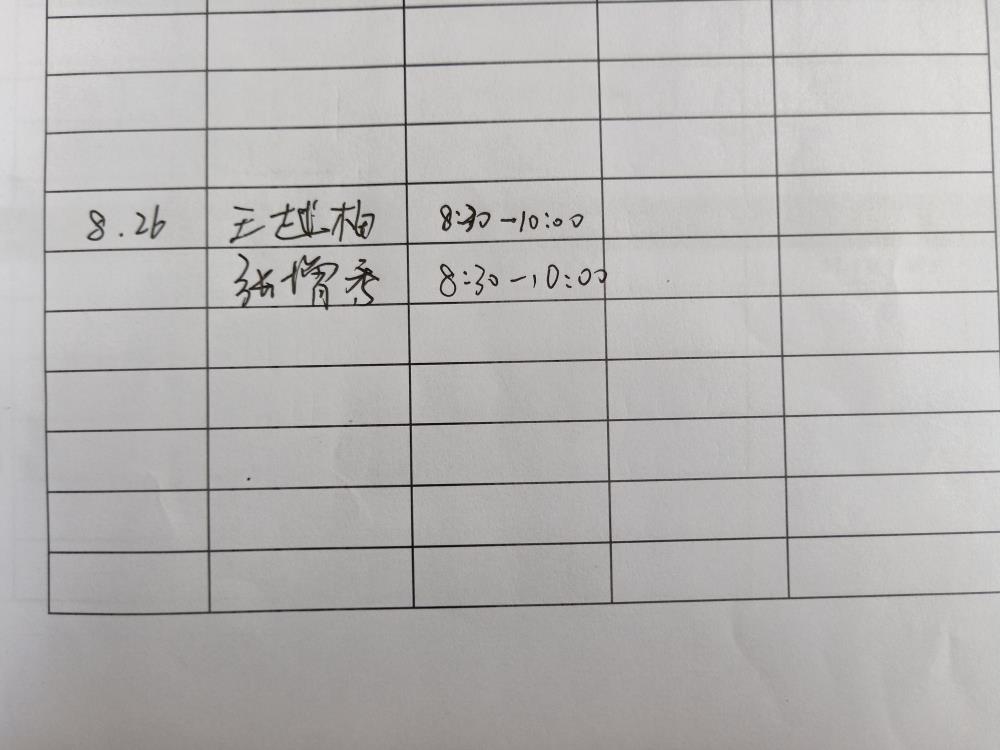 8.26 王越柏 8:30-10:00
张增秀 8:30-10:00